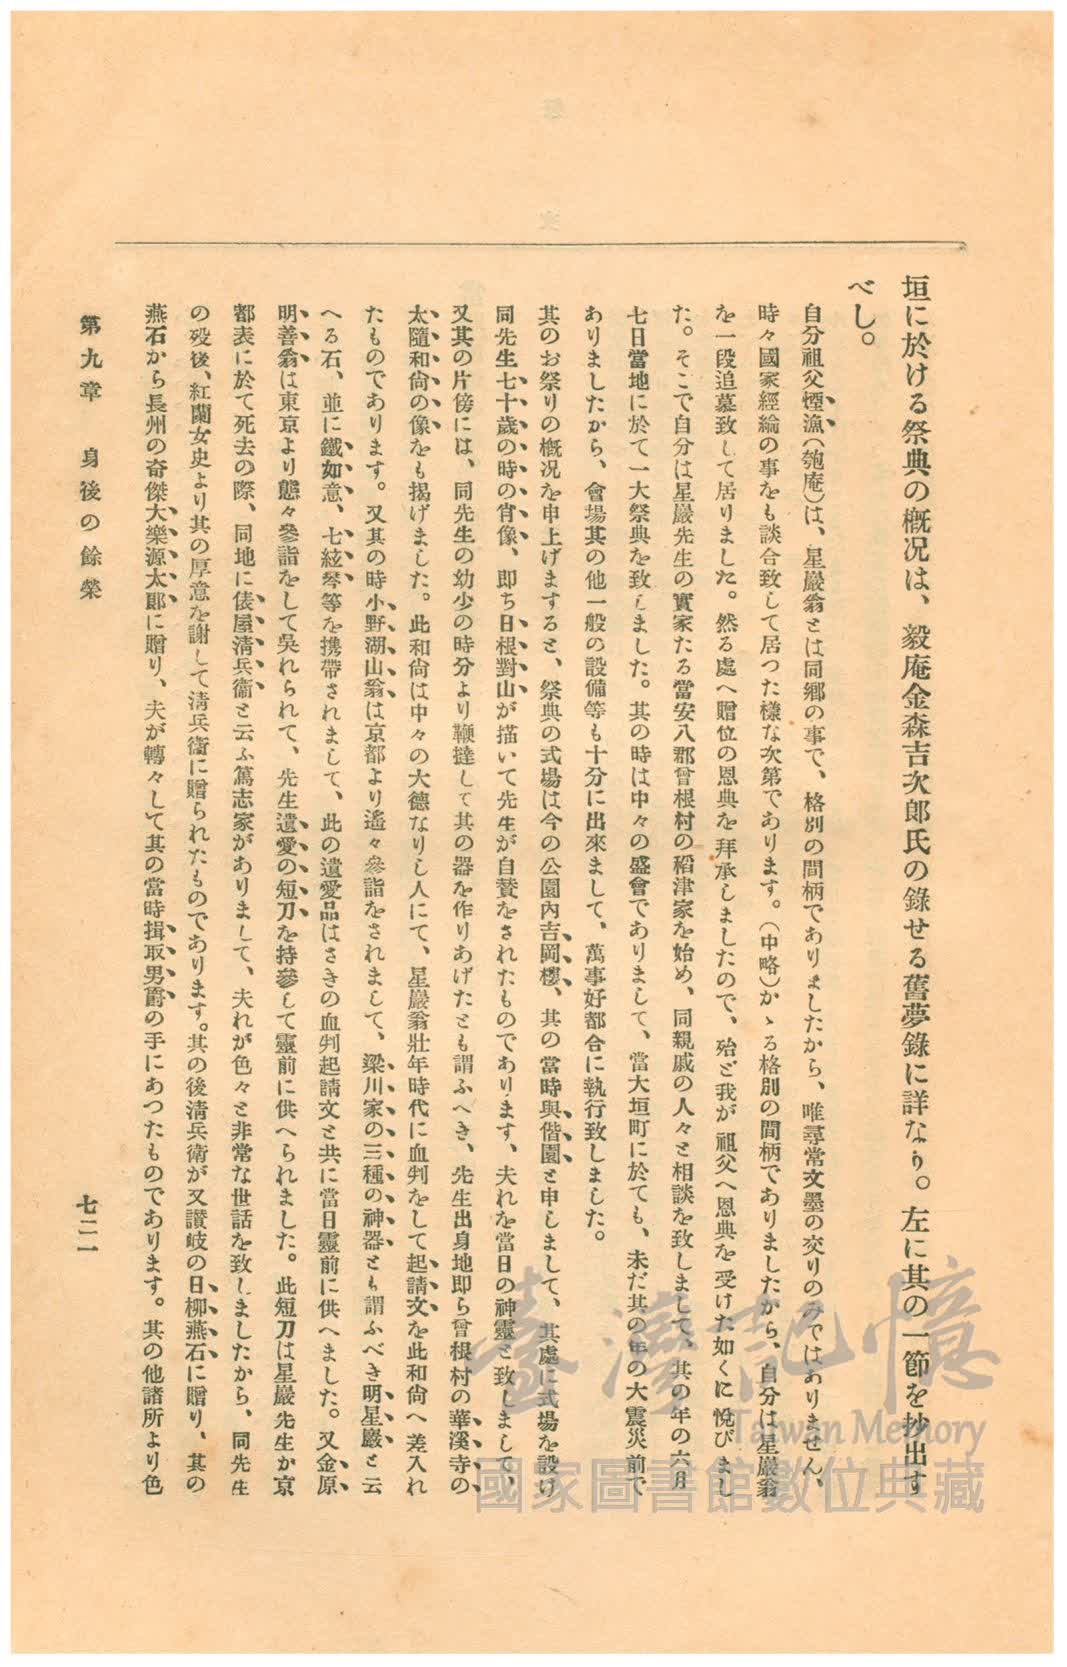 垣に於ける祭典の概况は、毅庵金森吉次郎氏の錄せる舊夢錄に詳なり。左に其の一節を抄出す
べし。
自分祖父煙漁(匏庵)は、星巖翁とは同鄕の事で、格別の間柄でありましたから、唯尋常文墨の交りのみではありません、
時々國家經綸の事をも談合致して居つた樣な次第であります。(中略)かゝる格別の間柄でありましたから、自分は星巖翁
を一段追慕致して居りました。然る處へ贈位の恩典を拜承しましたので、殆ど我が祖父へ恩典を受けた如くに悅びまし
た。そこで自分は星巖先生の實家たる當安八郡曾根村の稻津家を始め、同親戚の人々と相談を致しまして、其の年の六月
七日當地に於て一大祭典を致しました。其の時は中々の盛會でありまして、當大垣町に於ても、未だ其の年の大震災前で
ありましたから、會場其の他一般の設備等も十分に出來まして、萬事好都合に執行致しました。
其のお祭りの槪况を申上げますると、祭典の式場は今の公園內吉岡樓、其の當時與偕園と申しまして、其處に式場を設け
同先生七十歲の時の肖像、卽ち日根對山が描いて先生が自贊をされたものであります、夫れを當日の神靈と致しまして、
又其の片傍には、同先生の幼少の時分より鞭撻して其の器を作りあげたとも謂ふへき、先生出身地卽ち曾根村の華溪寺の
太隨和尙の像をも揭げました。此和尙は中々の大德なりし人にて、星巖翁壯年時代に血判をして起請文を此和尙へ差入れ
たものであります。又其の時小野湖山翁は京都より遙々參詣をされまして、梁川家の三種の神器とも謂ふべき明星巖と云
へる石、並に鐵如意、七絃琴等を携帶されまして、此の遺愛品はさきの血判起請文と共に當日靈前に供へました。又金原
明善翁は東京より態々參詣をして吳れられて、先生遺愛の短刀を持參して靈前に供へられました。此短刀は星巖先生か京
都表に於て死去の際、同地に俵屋淸兵衞と云ふ篤志家がありまして、夫れが色々と非常な世話を致しましたから、同先生
の歿後、紅蘭女史より其の厚意を謝して淸兵衞に贈られたものであります。其の後淸兵衛が又讃岐の日柳燕石に贈り、其の
燕石から長州の奇傑大樂源太郞に贈り、夫が轉々して其の當時揖取男爵の手にあつたものであります。其の他諸所より色
第九章　身後の餘榮
七二一
臺灣記憶
Taiwan Memory
國家圖書館數位典藏